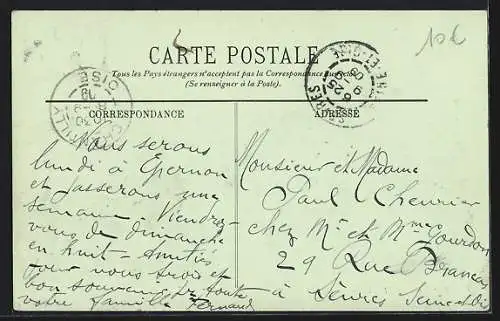 10€
CARTE POSTALE
Tous les Pays étrangers n'acceptent pas la Correspondance au recto
(Se renseigner à la Poste).
CORRESPONDANCE
ADRESSE
OISE
SÈVRES
SEINE-ET-OISE
Nous serons
lundi à Epernon
et passerons une
semaine. Viendrez
vous de dimanche
en huit. Amitiés
pour vous trois et
bon souvenir de toute
votre famille Fernand
Monsieur et Madame
Paul Cheurier
chez Mr et Mme Gourdon
29 Rue Brancas
à Sèvres Seine et Oise